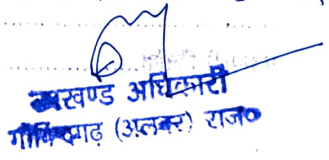 उपखण्ड अधिकारी
गोविन्दगढ़ (अलवर) राज०